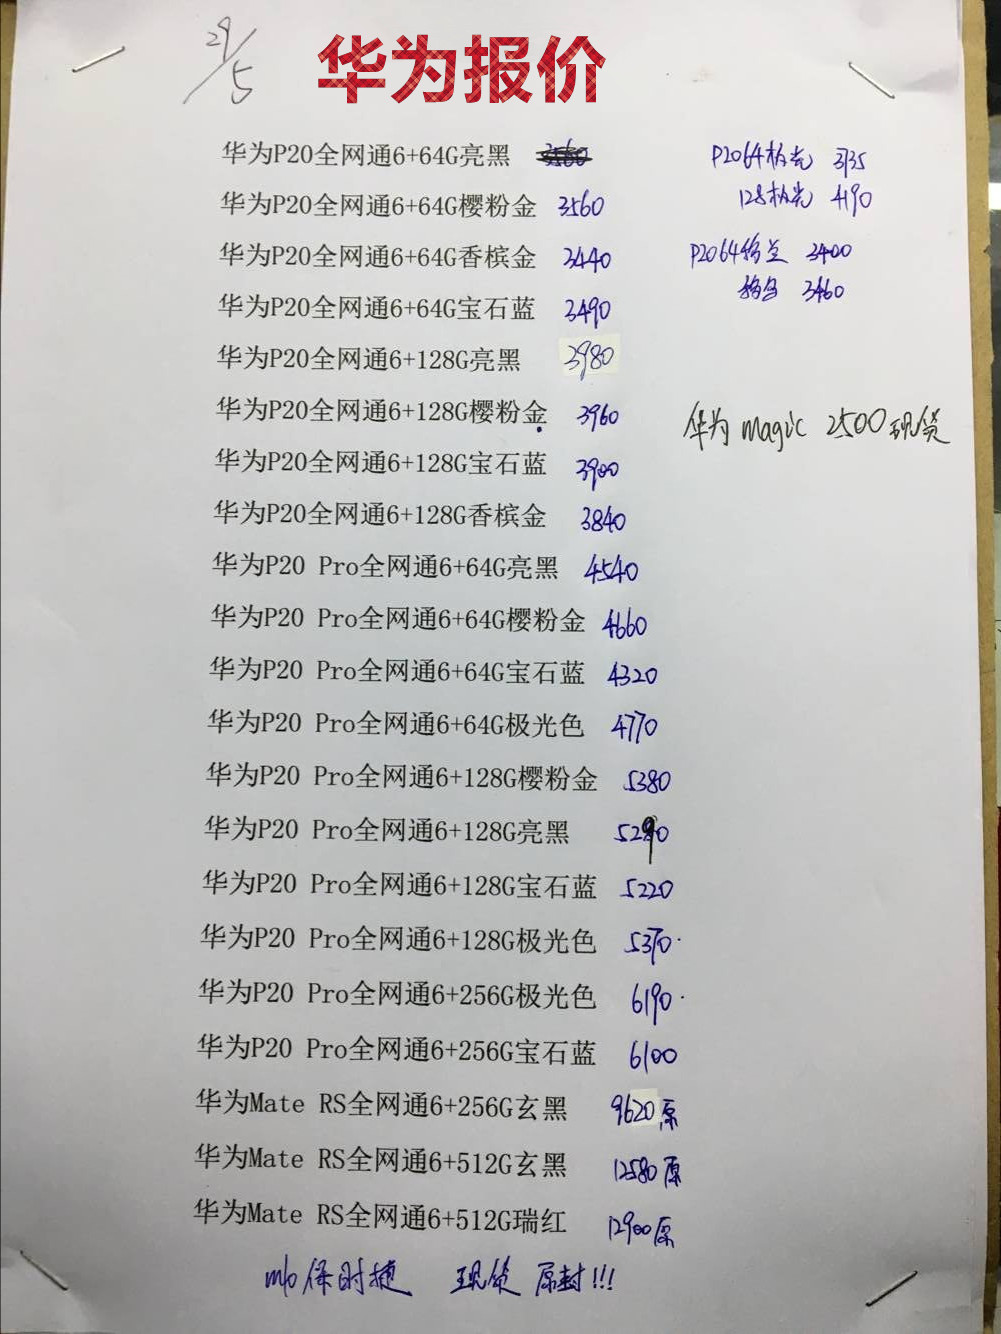 29/5
华为报价
华为P20全网通6+64G亮黑
华为P20全网通6+64G樱粉金 3560
华为P20全网通6+64G香槟金 3440
华为P20全网通6+64G宝石蓝 3490
华为P20全网通6+128G亮黑 3980
华为P20全网通6+128G樱粉金 3960
华为P20全网通6+128G宝石蓝 3900
华为P20全网通6+128G香槟金 3840
华为P20 Pro全网通6+64G亮黑 4540
华为P20 Pro全网通6+64G樱粉金 4660
华为P20 Pro全网通6+64G宝石蓝 4320
华为P20 Pro全网通6+64G极光色 4770
华为P20 Pro全网通6+128G樱粉金 5380
华为P20 Pro全网通6+128G亮黑 5290
华为P20 Pro全网通6+128G宝石蓝 5220
华为P20 Pro全网通6+128G极光色 5370
华为P20 Pro全网通6+256G极光色 6190
华为P20 Pro全网通6+256G宝石蓝 6100
华为Mate RS全网通6+256G玄黑 9620原
华为Mate RS全网通6+512G玄黑 12580原
华为Mate RS全网通6+512G瑞红 12900原
m10保时捷 现货 原封!!!
P2064极光 3735
128极光 4190
P2064移兰 3400
移含 3460
华为 magic 2500现货